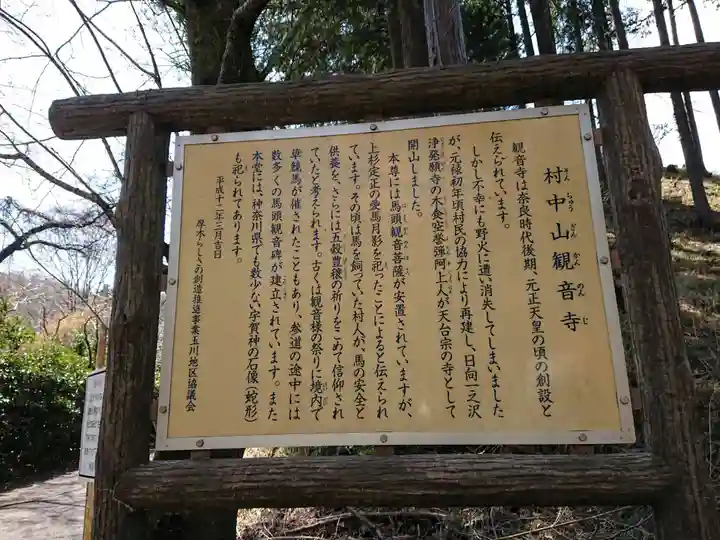 村中山観音寺
そんちゅうざんかんのんじ
観音寺は奈良時代後期、元正天皇の頃の創設と
伝えられています。
しかし不幸にも野火に遭い消失してしまいました
が、元禄初年頃村民の協力により再建し、日向一之沢
浄発願寺の木食空誉弾阿上人が天台宗の寺として
開山しました。
本尊には馬頭観音菩薩が安置されていますが、
上杉定正の愛馬月影を祀ったことによると伝えられ
ています。その頃は馬を飼っていた村人が、馬の安全と
供養を、さらには五穀豊穣の祈りをこめて信仰され
ていたと考えられます。古くは観音様の祭りに境内で
草競馬が催されたこともあり、参道の途中には
数多くの馬頭観音碑が建立されています。また
本堂には、神奈川県でも数少ない宇賀神の石像(蛇形)
も祀られてあります。
平成十二年三月吉日
厚木らしさの創造推進事業玉川地区協議会